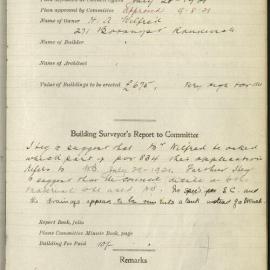 Plan approved by Committee Approved 9-8-21
Name of Owner H. A. Wilfred
271 Randwick
Name of Builder
Name of Architect
Value of Buildings to be erected £675
Building Surveyor's Report to Committee
I beg to suggest that Mr Wilfred be asked
which part of por 834 this application
refers to July 29-1921. Further I beg
to suggest that the council decide as to the
material to be used No spec for S.C. and
the drainage appears to be run into a tank instead of
Report Book, folio
Plans Committee Minute Book, page
Building Fee Paid 10/-
Remarks